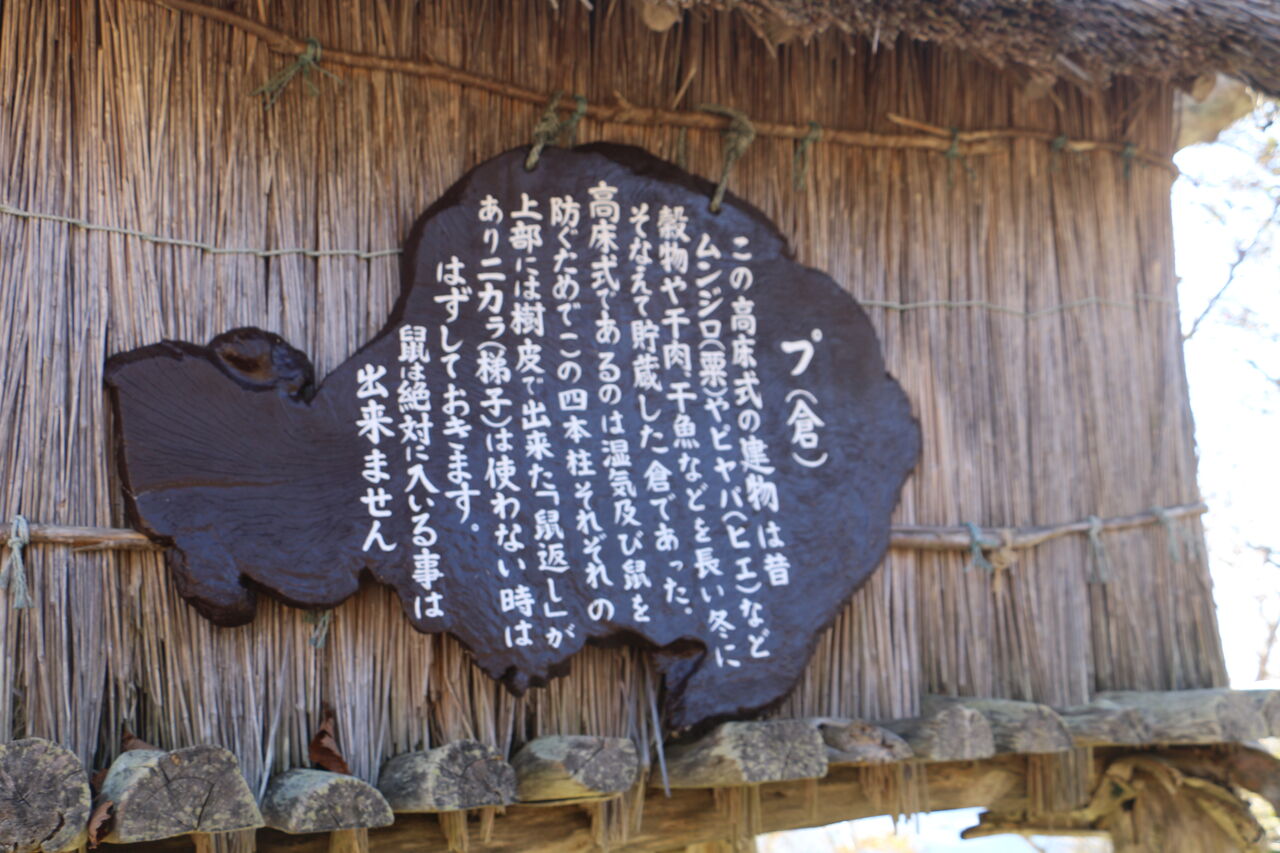 プ(倉)
この高床式の建物は昔
ムンジロ(粟)やピヤパ(ヒエ)など
穀物や干肉、干魚などを長い冬に
そなえて貯蔵した倉であった。
高床式であるのは湿気及び鼠を
防ぐためでこの四本柱それぞれの
上部には樹皮で出来た「鼠返し」が
あり二カラ(梯子)は使わない時は
はずしておきます。
鼠は絶対に入いる事は
出来ません